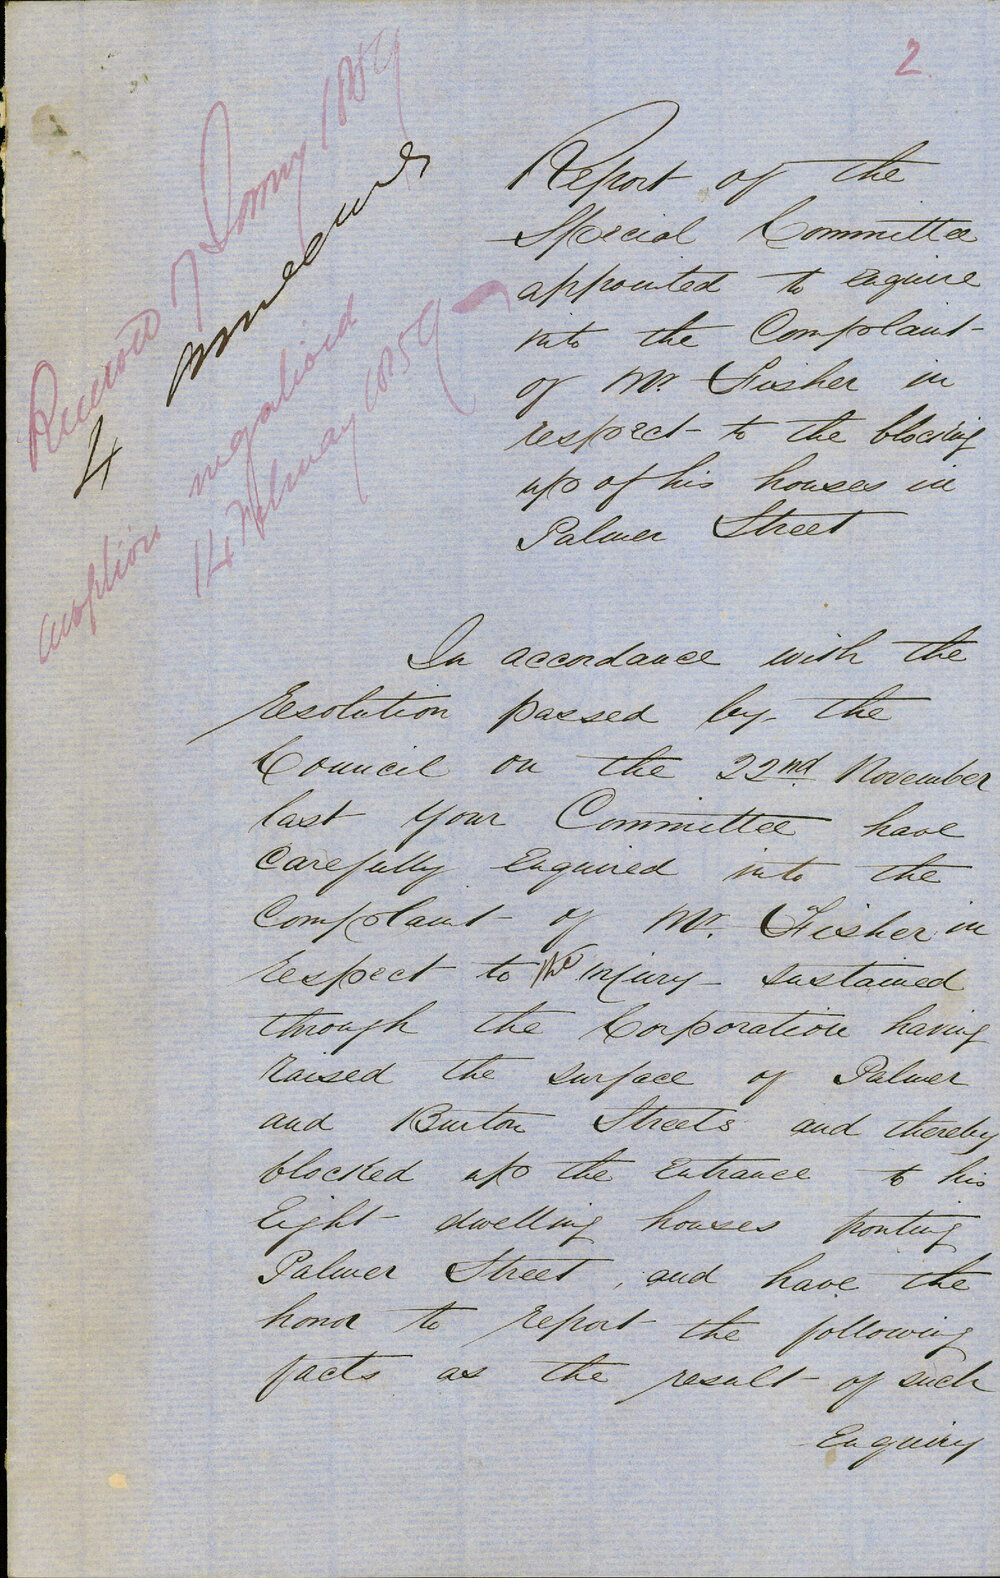 2
Received 7 Jany 1859
4 annexures
adoption negatived
14 February 1859
Report of the
Special Committee
appointed to enquire
into the Complaint
of Mr. Fisher in
respect to the blocking
up of his houses in
Palmer Street
In accordance with the
resolution passed by the
Council on the 22nd November
last your Committee have
Carefully Enquired into the
Complaint of Mr. Fisher in
respect to the injury sustained
through the Corporation having
raised the surface of Palmer
and Burton Streets and thereby
blocked up the Entrance to his
Eight dwelling houses fronting
Palmer Street, and have the
honor to report the following
facts as the result of such
Enquiry